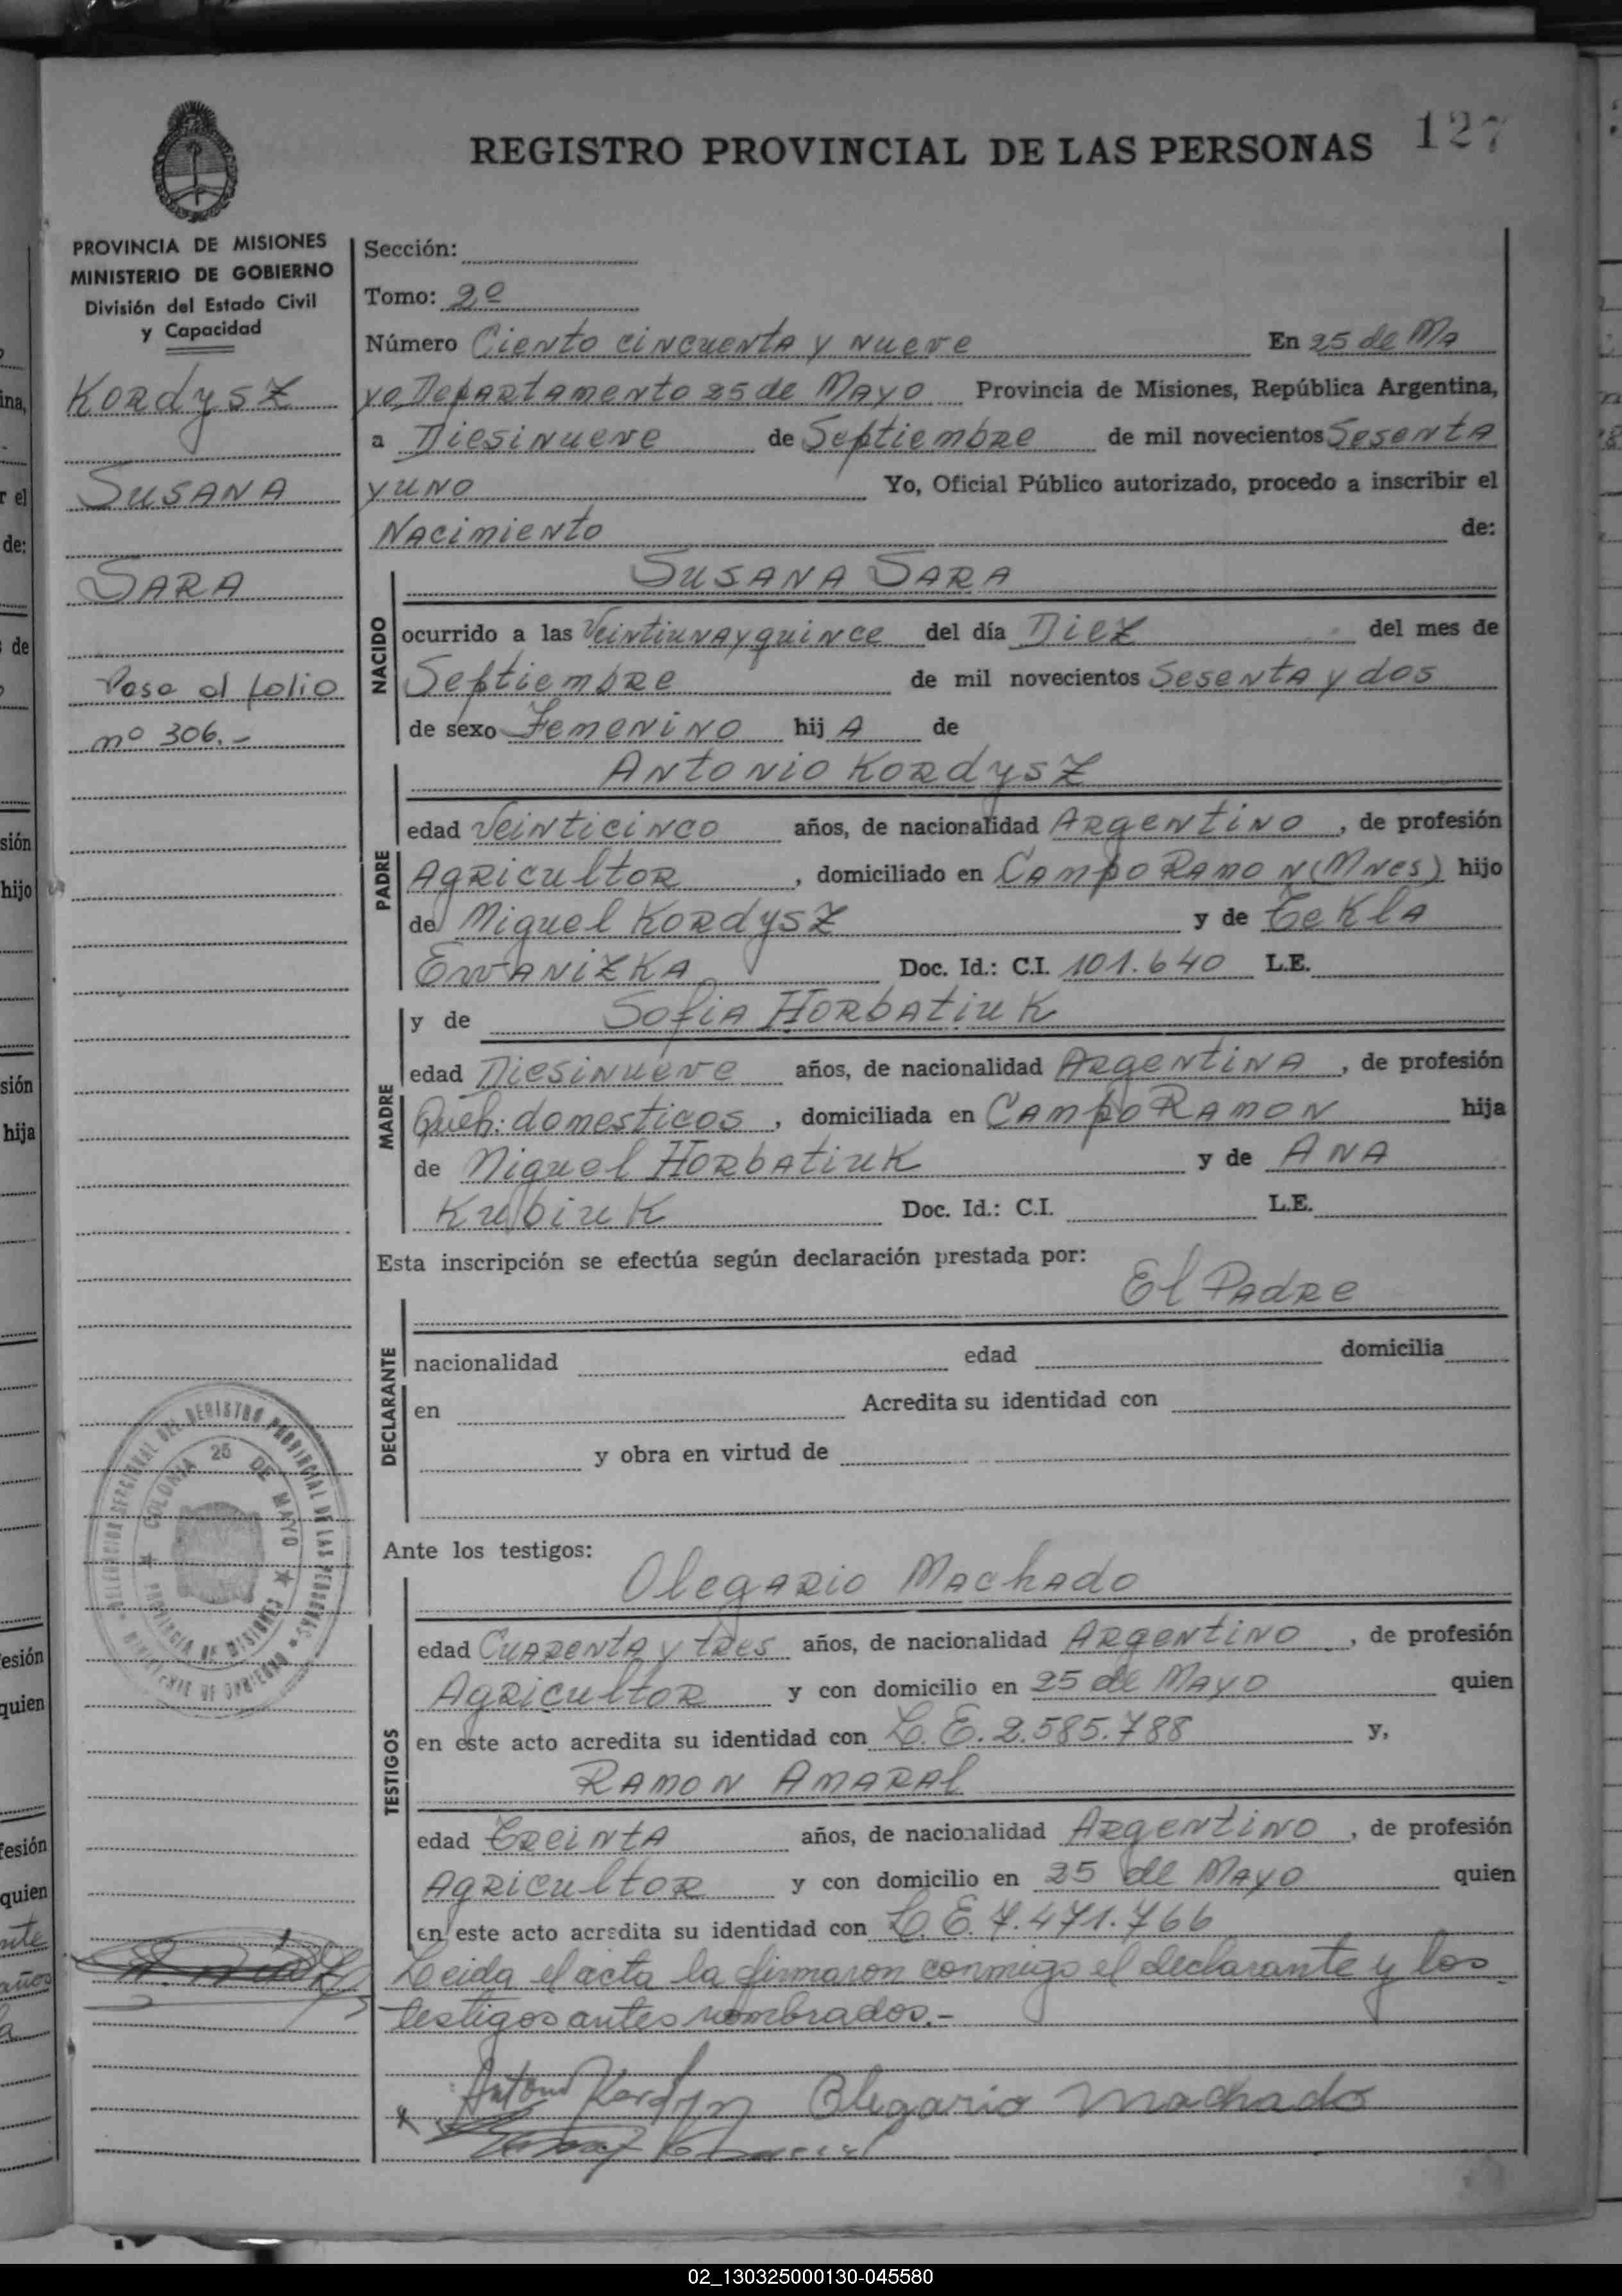 127
REGISTRO PROVINCIAL DE LAS PERSONAS
PROVINCIA DE MISIONES
MINISTERIO DE GOBIERNO
División del Estado Civil
y Capacidad
Kordysz
Susana
Sara
Pase al folio
nº 306.-
Sección:
Tomo: 2º
Número Ciento cincuenta y nueve En 25 de Ma
yo Departamento 25 de Mayo Provincia de Misiones, República Argentina,
a Diesinueve de Septiembre de mil novecientos Sesenta
y uno Yo, Oficial Público autorizado, procedo a inscribir el
Nacimiento de:
NACIDO
Susana Sara
ocurrido a las Veintiuna y quince del día Diez del mes de
Septiembre de mil novecientos Sesenta y dos
de sexo Femenino hij A de
PADRE
Antonio Kordysz
edad Veinticinco años, de nacionalidad Argentino, de profesión
Agricultor, domiciliado en Campo Ramon (Mnes) hijo
de Miguel Kordysz y de Tekla
Ewanizka Doc. Id.: C.I. 101.640 L.E.
MADRE
y de Sofia Horbatiuk
edad Diesinueve años, de nacionalidad Argentina, de profesión
Queh: domesticos, domiciliada en Campo Ramon hija
de Miguel Horbatiuk y de Ana
Kubiuk Doc. Id.: C.I. L.E.
Esta inscripción se efectúa según declaración prestada por:
El Padre
DECLARANTE
nacionalidad edad domicilia
en Acredita su identidad con
y obra en virtud de
Ante los testigos:
TESTIGOS
Olegario Machado
edad Cuarenta y tres años, de nacionalidad Argentino, de profesión
Agricultor y con domicilio en 25 de Mayo quien
en este acto acredita su identidad con L.E. 2.585.788 y,
Ramon Amaral
edad Treinta años, de nacionalidad Argentino, de profesión
Agricultor y con domicilio en 25 de Mayo quien
en este acto acredita su identidad con L.E. 7.471.766
Leida el acta la firmaron conmigo el declarante y los
testigos antes nombrados.-
Antonio Kordysz Olegario Machado
COLONIA 25 DE MAYO
PROVINCIA DE MISIONES
02_130325000130-045580